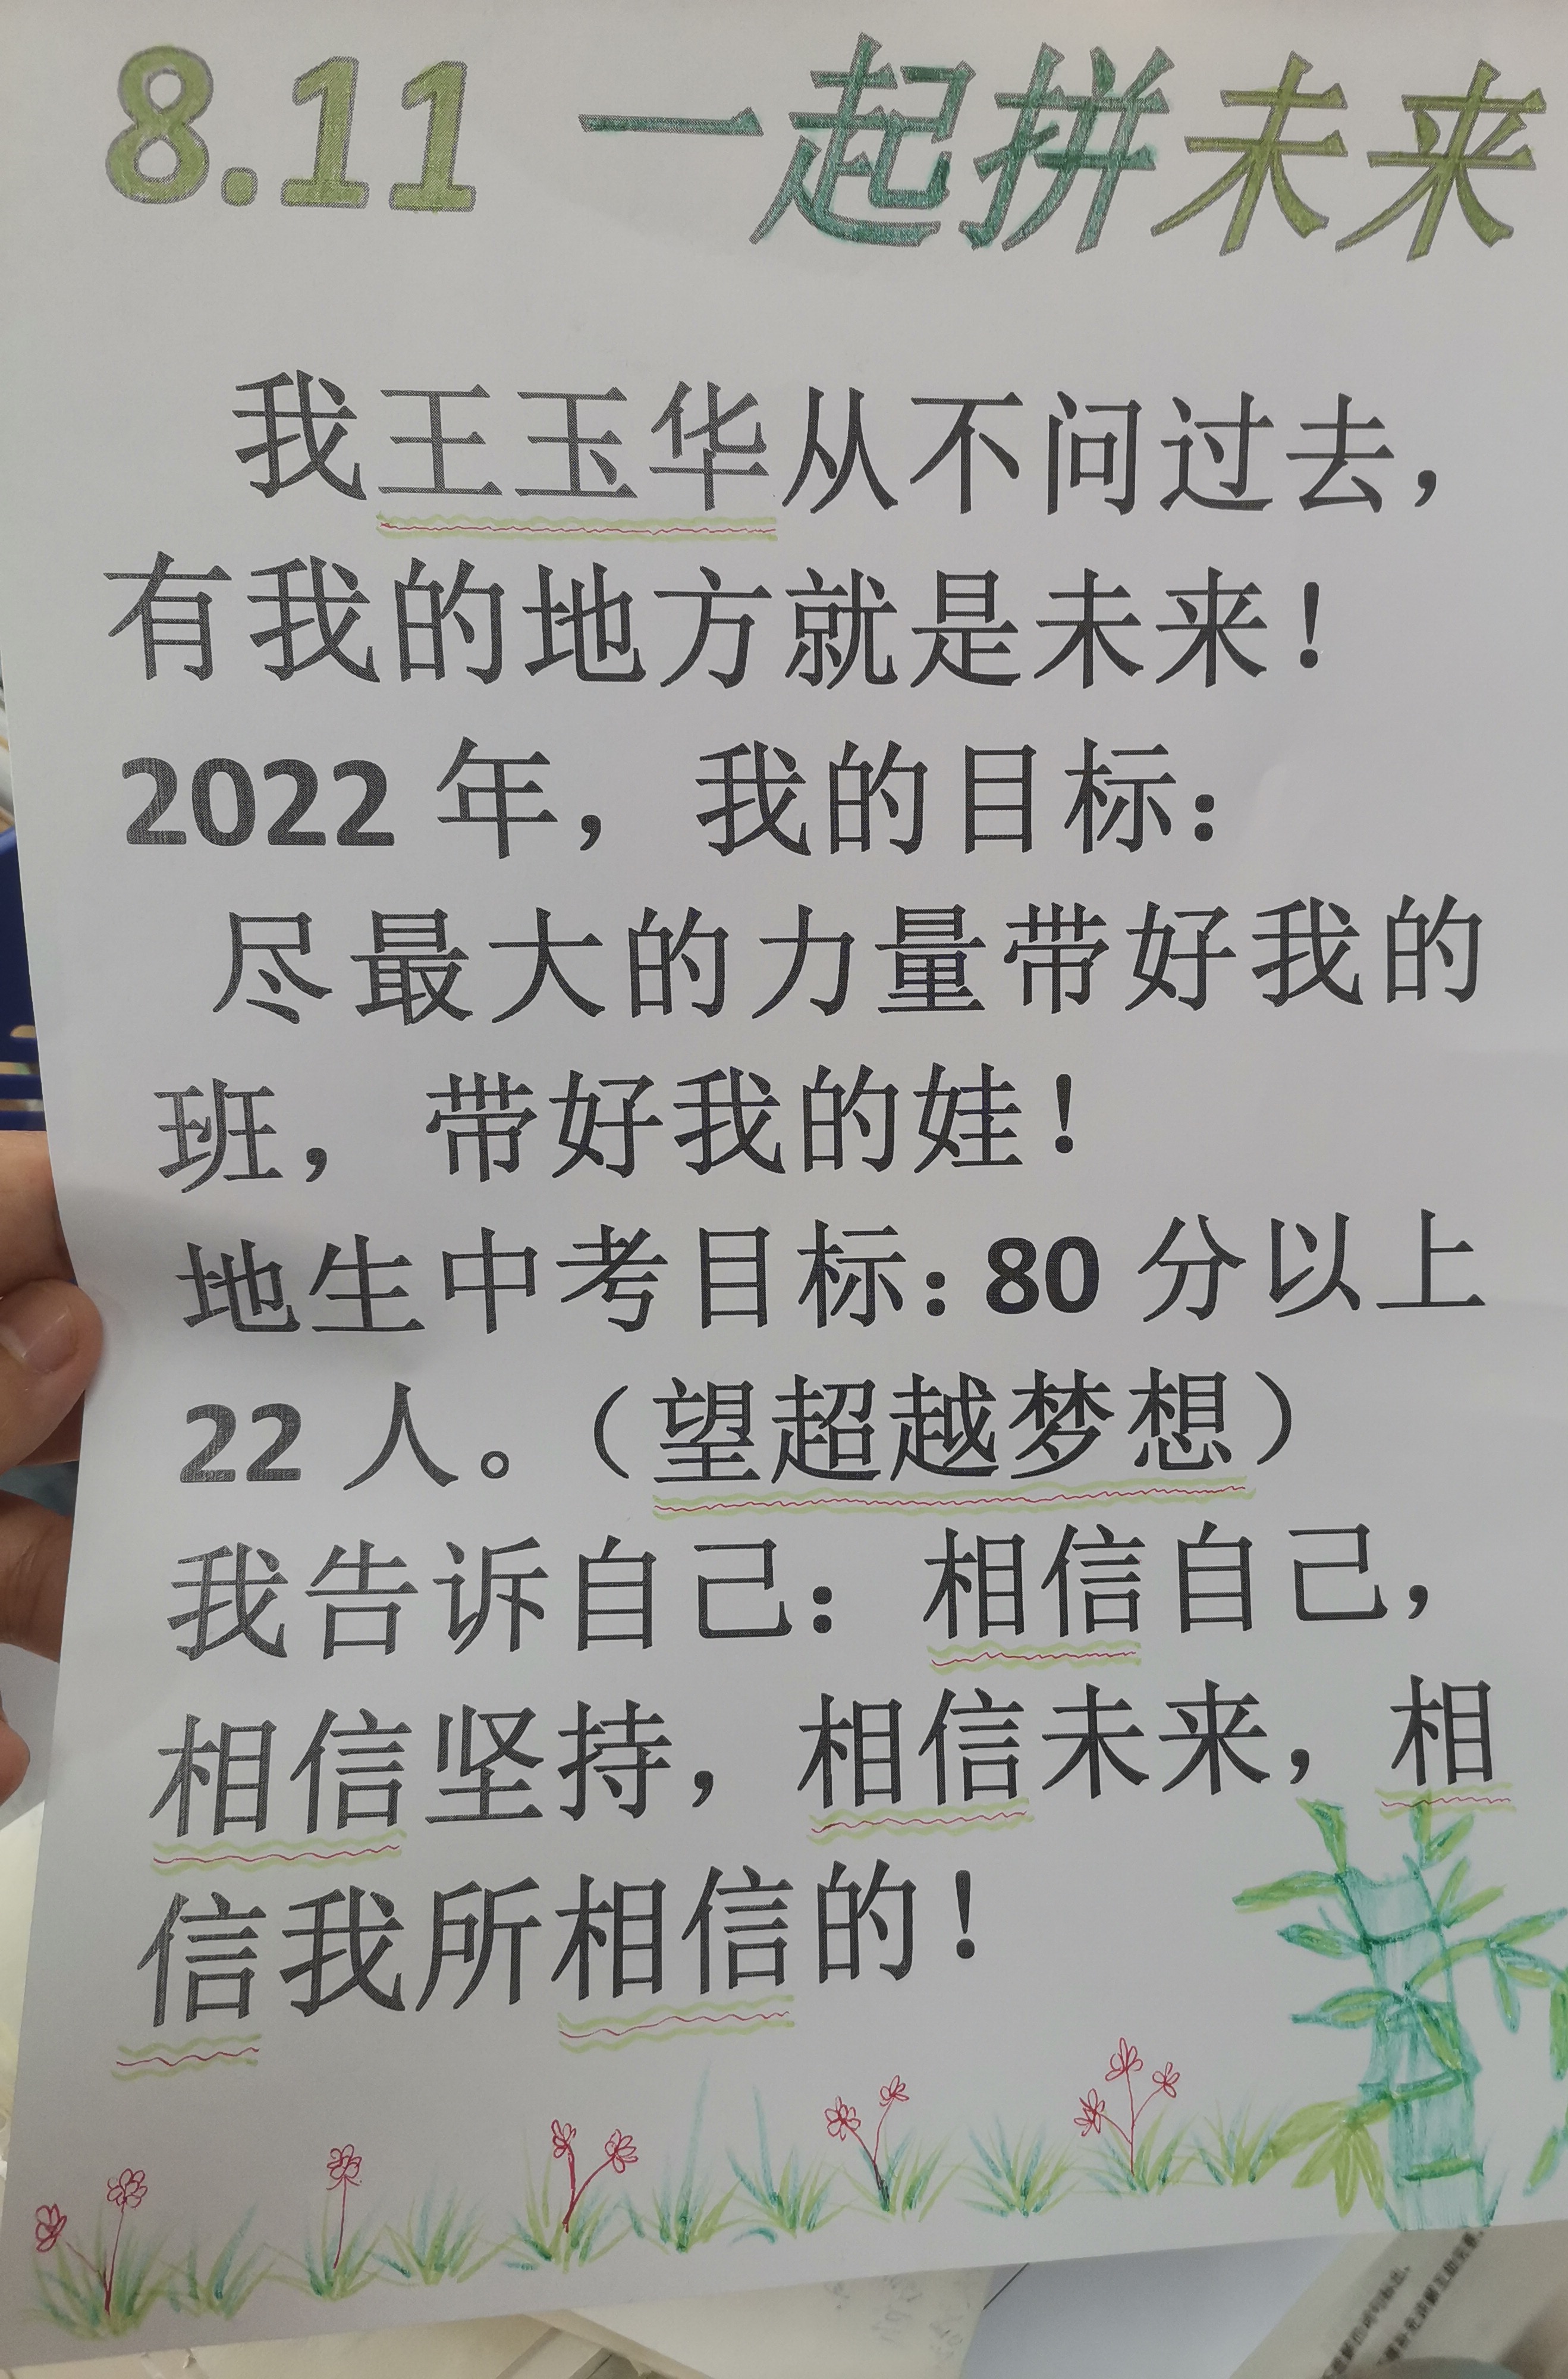 8.11 一起拼未来
我王玉华从不问过去，
有我的地方就是未来！
2022年，我的目标：
尽最大的力量带好我的
班，带好我的娃！
地生中考目标：80分以上
22人。（望超越梦想）
我告诉自己：相信自己，
相信坚持，相信未来，相
信我所相信的！